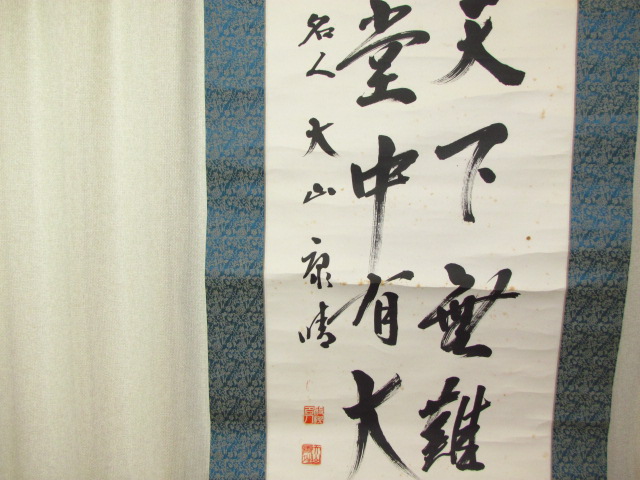 天下無難
堂中有大
名人 大山康晴